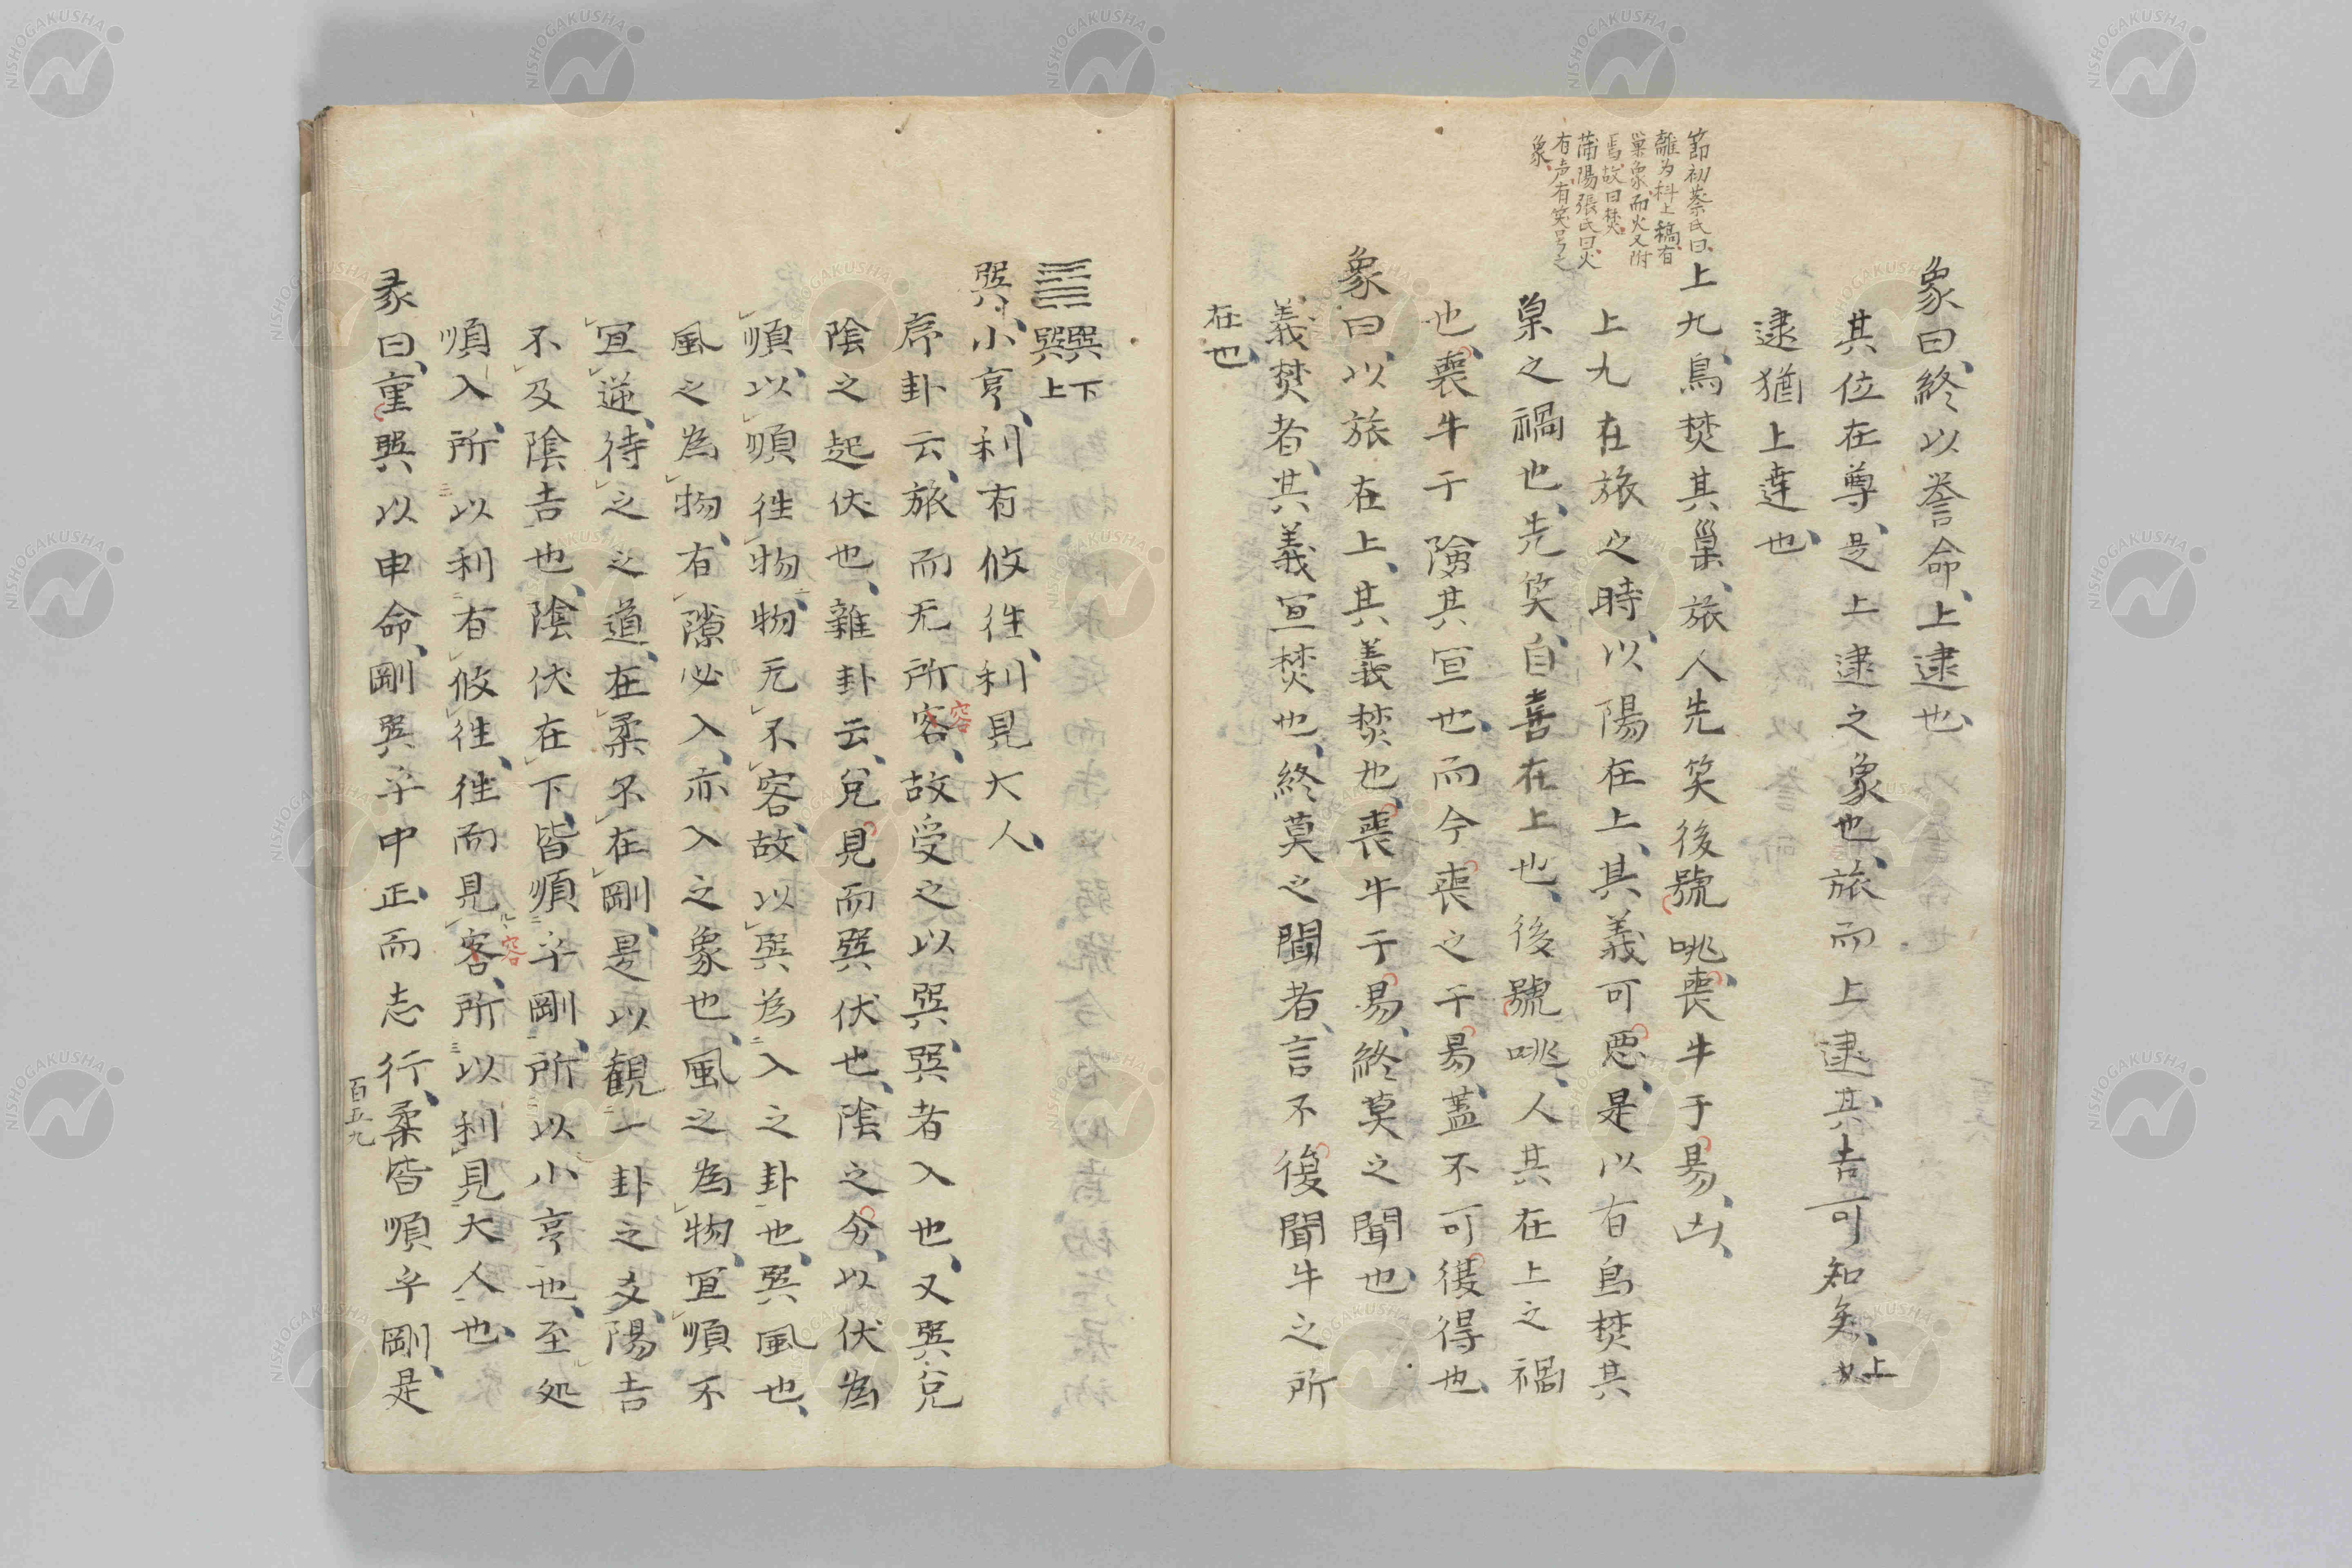 象曰、終以誉命、上逮也、
其位在尊、是上逮之象也、旅而上逮、其吉可知矣、上
逮猶上達也、
節初蔡氏曰、
離为科上稿、有
巣象、而火又附
焉、故曰焚、
莆陽張氏曰、火
有声、有笑号之
象、
上九、鳥焚其巣、旅人先笑後號咷、喪牛于易、凶、
上九在旅之時、以陽在上、其義可悪、是以有鳥焚其
巣之禍也、先笑、自喜在上也、後號咷、人其在上之禍
也、喪牛于険、其宜也、而今喪之于易、蓋不可復得也、
象曰、以旅在上、其義焚也、喪牛于易、終莫之聞也、
義焚者、其義宜焚也、終莫之聞者、言不復聞牛之所
在也、
䷸ 巽下巽上
巽、小亨、利有攸往、利見大人、
序卦云、旅而无所容、故受之以巽、巽者入也、又巽、兌
陰之起伏也、雜卦云、兌見而巽伏也、陰之分、以伏為
順、以順往物、物无不容、故以巽為入之卦也、巽風也、
風之為物、有隙必入、亦入之象也、風之為物、宜順不
宜逆、待之之道、在柔不在剛、是以観一卦之爻、陽吉
不及陰吉也、陰伏在下、皆順乎剛、所以小亨也、至処
順入、所以利有攸往、往而見容、所以利見大人也、
彖曰、重巽以申命、剛巽乎中正、而志行、柔皆順乎剛、是
百五九
容
容
NISHOGAKUSHA